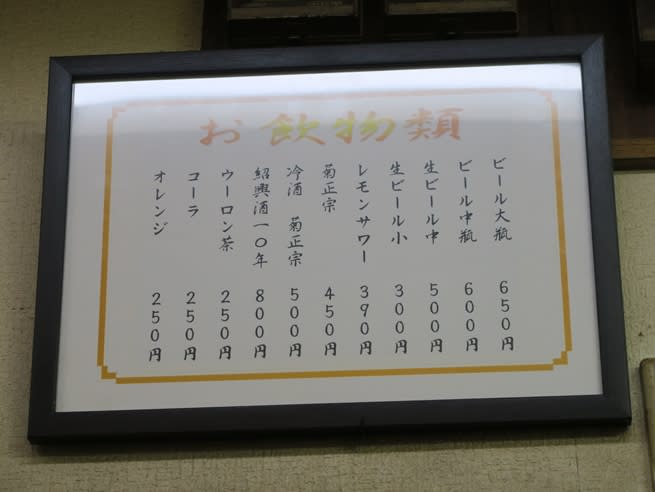 お飲物類
ビール大瓶 650円
ビール中瓶 600円
生ビール中 500円
生ビール小 300円
レモンサワー 390円
菊正宗 450円
冷酒 菊正宗 500円
紹興酒一〇年 800円
ウーロン茶 250円
コーラ 250円
オレンジ 250円